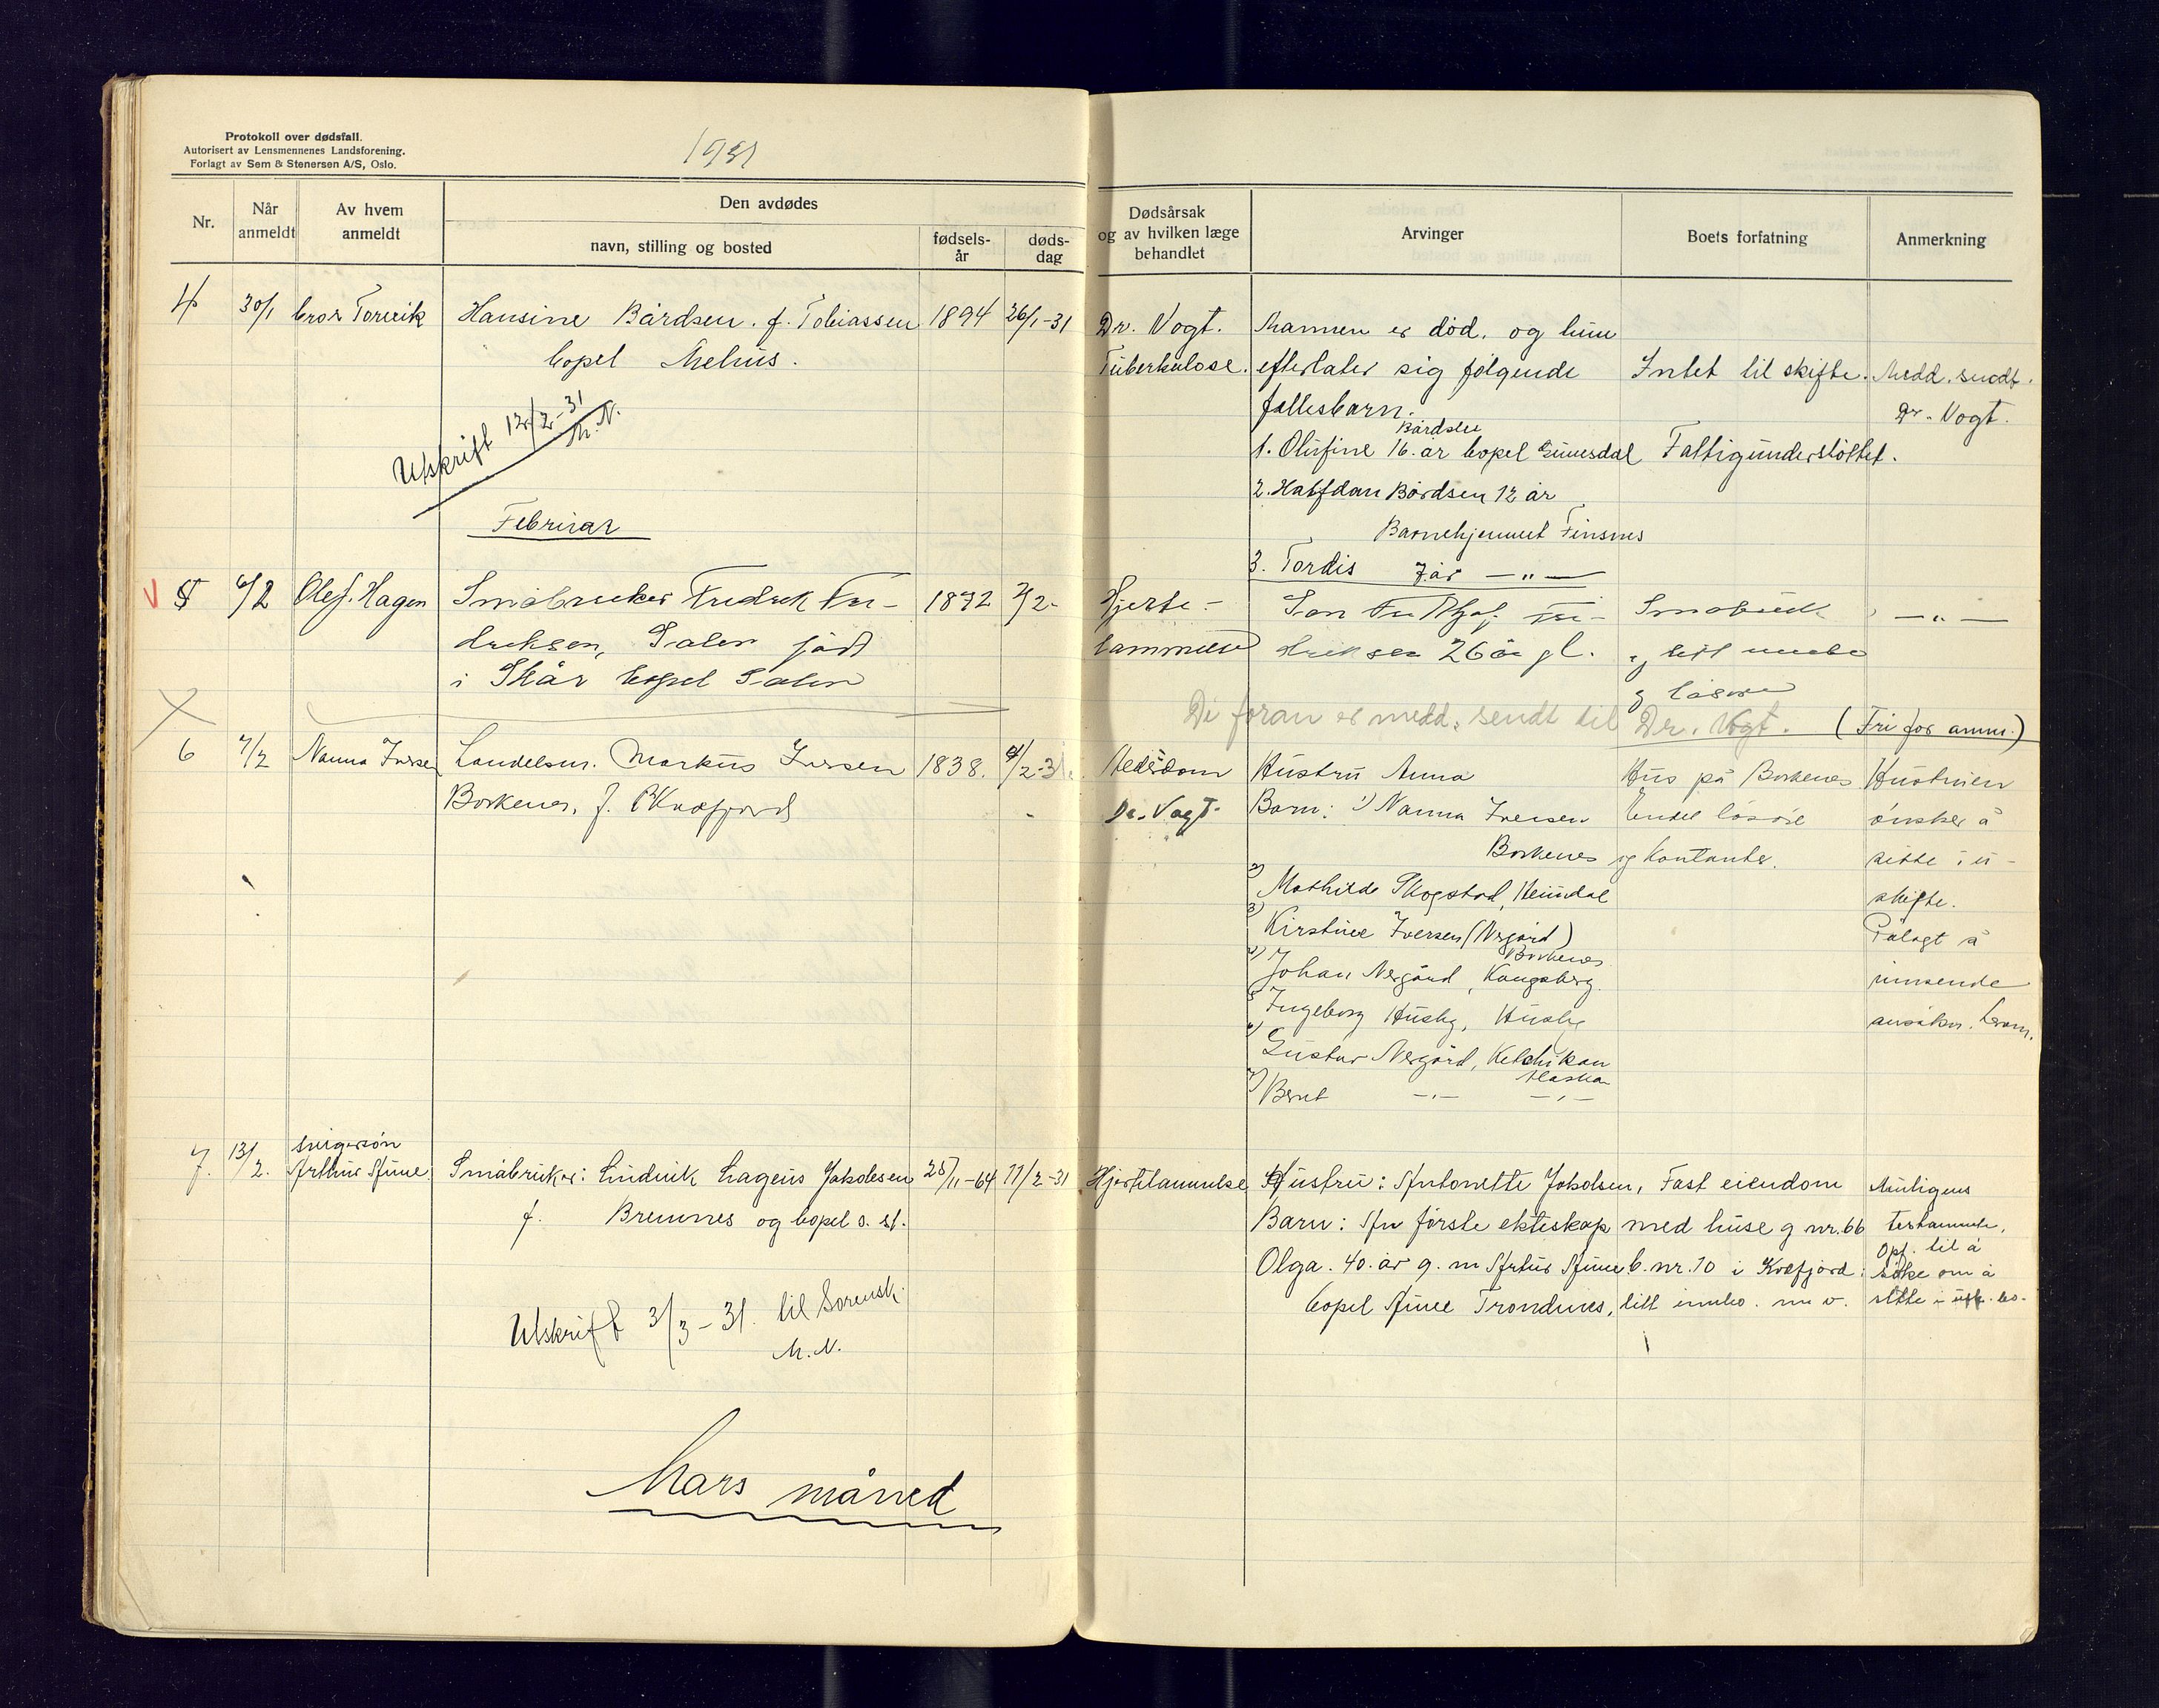 Protokoll over dødsfall.
Autorisert av Lensmennenes Landsforening.
Forlagt av Sem & Stenersen A/S, Oslo.
1931
Nr.
Når anmeldt
Av hvem anmeldt
Den avdødes
navn, stilling og bosted
fødsels-år
døds-dag
Dødsårsak og av hvilken læge behandlet
Arvinger
Boets forfatning
Anmerkning
4 30/1 Hansine Bårdsen. f. Tobiassen 1894 26/1-31
bopel Melhus.
Dr. Vogt.
Tuberkulose.
Mannen er död. og hun
efterlater sig fölgende
fellesbarn.
Bårdsen
1. Olufine 16. år bopel
2. Halfdan Bårdsen 12 år
Barnehjemmet Finsnes
3. Tordis 7 år — „ —
Intet til skifte.
Fattigunderstöttet.
Medd. sendt.
Dr. Vogt.
Utskrift 12/2-31
M.N.
Februar
V 5 6/2 Ole J. Hagen Småbruker Fredrik Fre-
driksen, født
i bopel
1892 2/2-
Hjerte-
lammelse
driksen 26 år gl.
Småbruk
og litt innbo
og lösöre
— „ —
De foran er medd. sendt til Dr. Vogt. (Fri for anm.)
6 7/2 Nanna Iversen Handelsm. Markus Iversen 1838. 4/2-31.
Borkenes, f. Kvæfjord
Aldersdom
Dr. Vogt.
Hustru Anna
Barn: 1) Nanna Iversen
Borkenes
2) Mathilde Skogstad, Heimdal
3) Kirstine Iversen (Nergård)
Borkenes
4) Johan Nergård, Kongsberg.
5) Ingeborg Husby, Husby
6) Gustav Nergård, Ketchikan
Alaska
7) Bernt —„— —„—
Hus på Borkenes
Endel lösöre
og kontanter.
Hustruen
önsker å
sitte i u-
skifte.
Pålagt å
innsende
ansökn.
7. 13/2. svigersön
Arthur Aune Småbruker: Ludvik Hagerus Jakobsen 25/11-64 11/2-31
f. Bremnes og bopel s. st.
Hjertelammelse
Hustru: Antonette Jakobsen,
Barn: Av förste ekteskap
Olga. 40. år g. m Artur Aune
bopel Aune Trondenes,
Fast eiendom
med huse g nr. 66
b. nr. 10 i Kvæfjord:
litt innbo. m v.
Muligens
testamente.
Opf. til å
söke om å
sitte i usk. bo.
Utskrift 3/3-31. til Sorensk.
M.N.
Mars måned